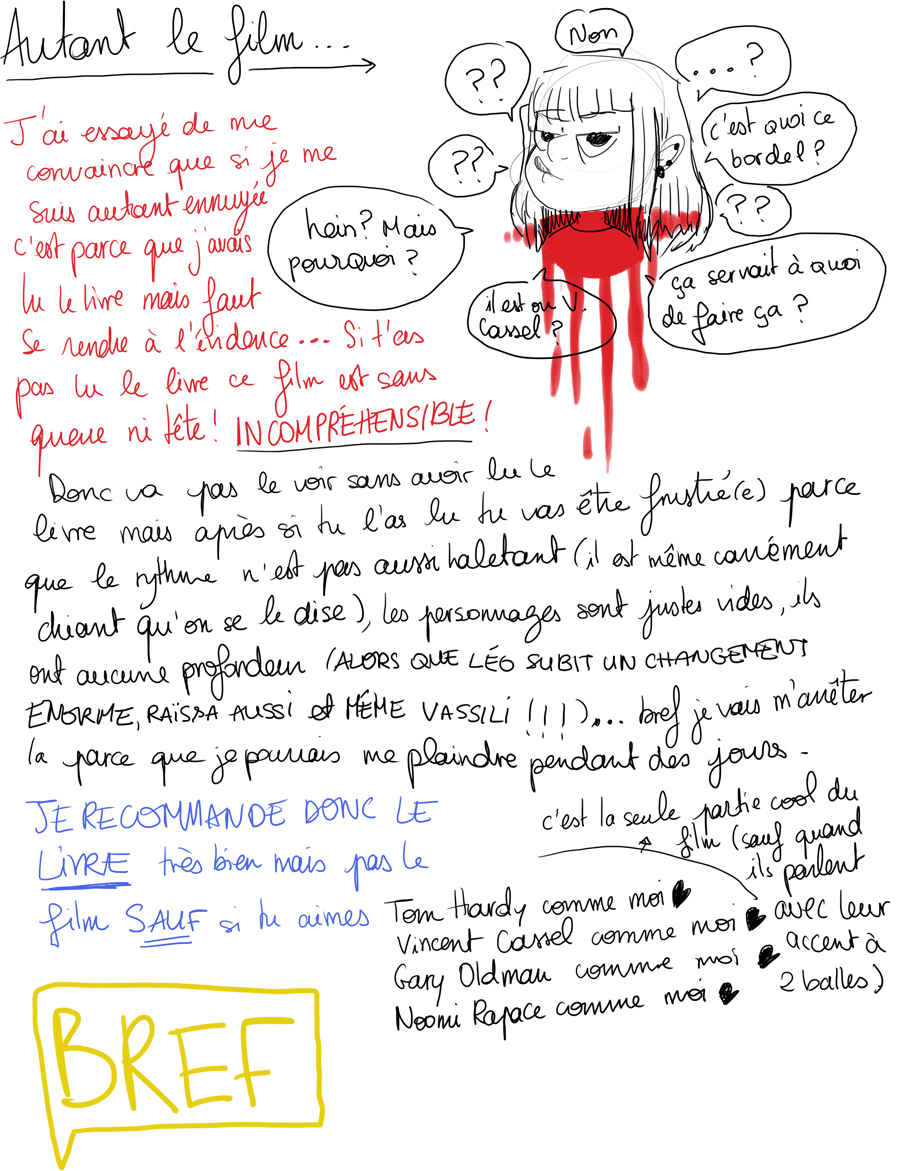 Autant le film...
Non
??
...?
c'est quoi ce
bordel?
??
??
hein? Mais
pourquoi?
il est ou V.
Cassel?
ça servait à quoi
de faire ça?
J'ai essayé de me
convaincre que si je me
suis autant ennuyée
c'est parce que j'avais
lu le livre mais faut
se rendre à l'évidence... Si t'as
pas lu le livre ce film est sans
queue ni tête! INCOMPRÉHENSIBLE!
Donc va pas le voir sans avoir lu le
livre mais après si tu l'as lu tu vas être frustré(e) parce
que le rythme n'est pas aussi haletant (il est même carrément
chiant qu'on se le dise), les personnages sont justes vides, ils
ont aucune profondeur (ALORS QUE LÉO SUBIT UN CHANGEMENT
ENORME, RAÏSSA AUSSI et MÊME VASSILI !!!)... bref je vais m'arrêter
la parce que je pourrais me plaindre pendant des jours.
JE RECOMMANDE DONC LE
LIVRE très bien mais pas le
film SAUF si tu aimes
Tom Hardy comme moi
Vincent Cassel comme moi
Gary Oldman comme moi
Noomi Rapace comme moi
c'est la seule partie cool du
film (sauf quand
ils parlent
avec leur
accent à
2 balles)
BREF